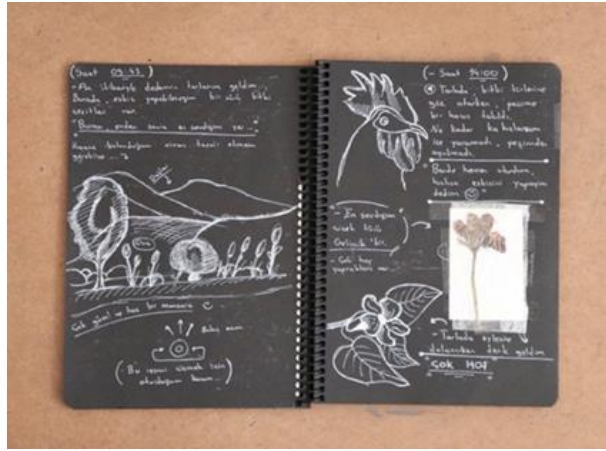 (Saat 09:33)
- An itibariyle dedemin tarlasına geldim...
Burada, eskiz yapabileceğim bir sürü bitki
çeşitleri var.
"Burası, evden sonra en sevdiğim yer..."
bulunduğum
görebilir
Çok güzel ve hoş bir manzara
Bakış
(- Bu resmi çizmek için
oturduğum konum...)
(- Saat 14:00)
Tarlada, bitki türlerine
göz atarken, peşime
bir horoz takıldı.
Ne kadar kovalasam
işe yaramadı, peşimden
ayrılmadı.
"Bende hemen oturdum,
eskizini yapayım
dedim
- En sevdiğim
çiçek türü
Gelincik'tir.
- Çok hoş
yaprakları var...
- Tarlada öylesine
dolanırken denk geldim.
ÇOK HOŞ